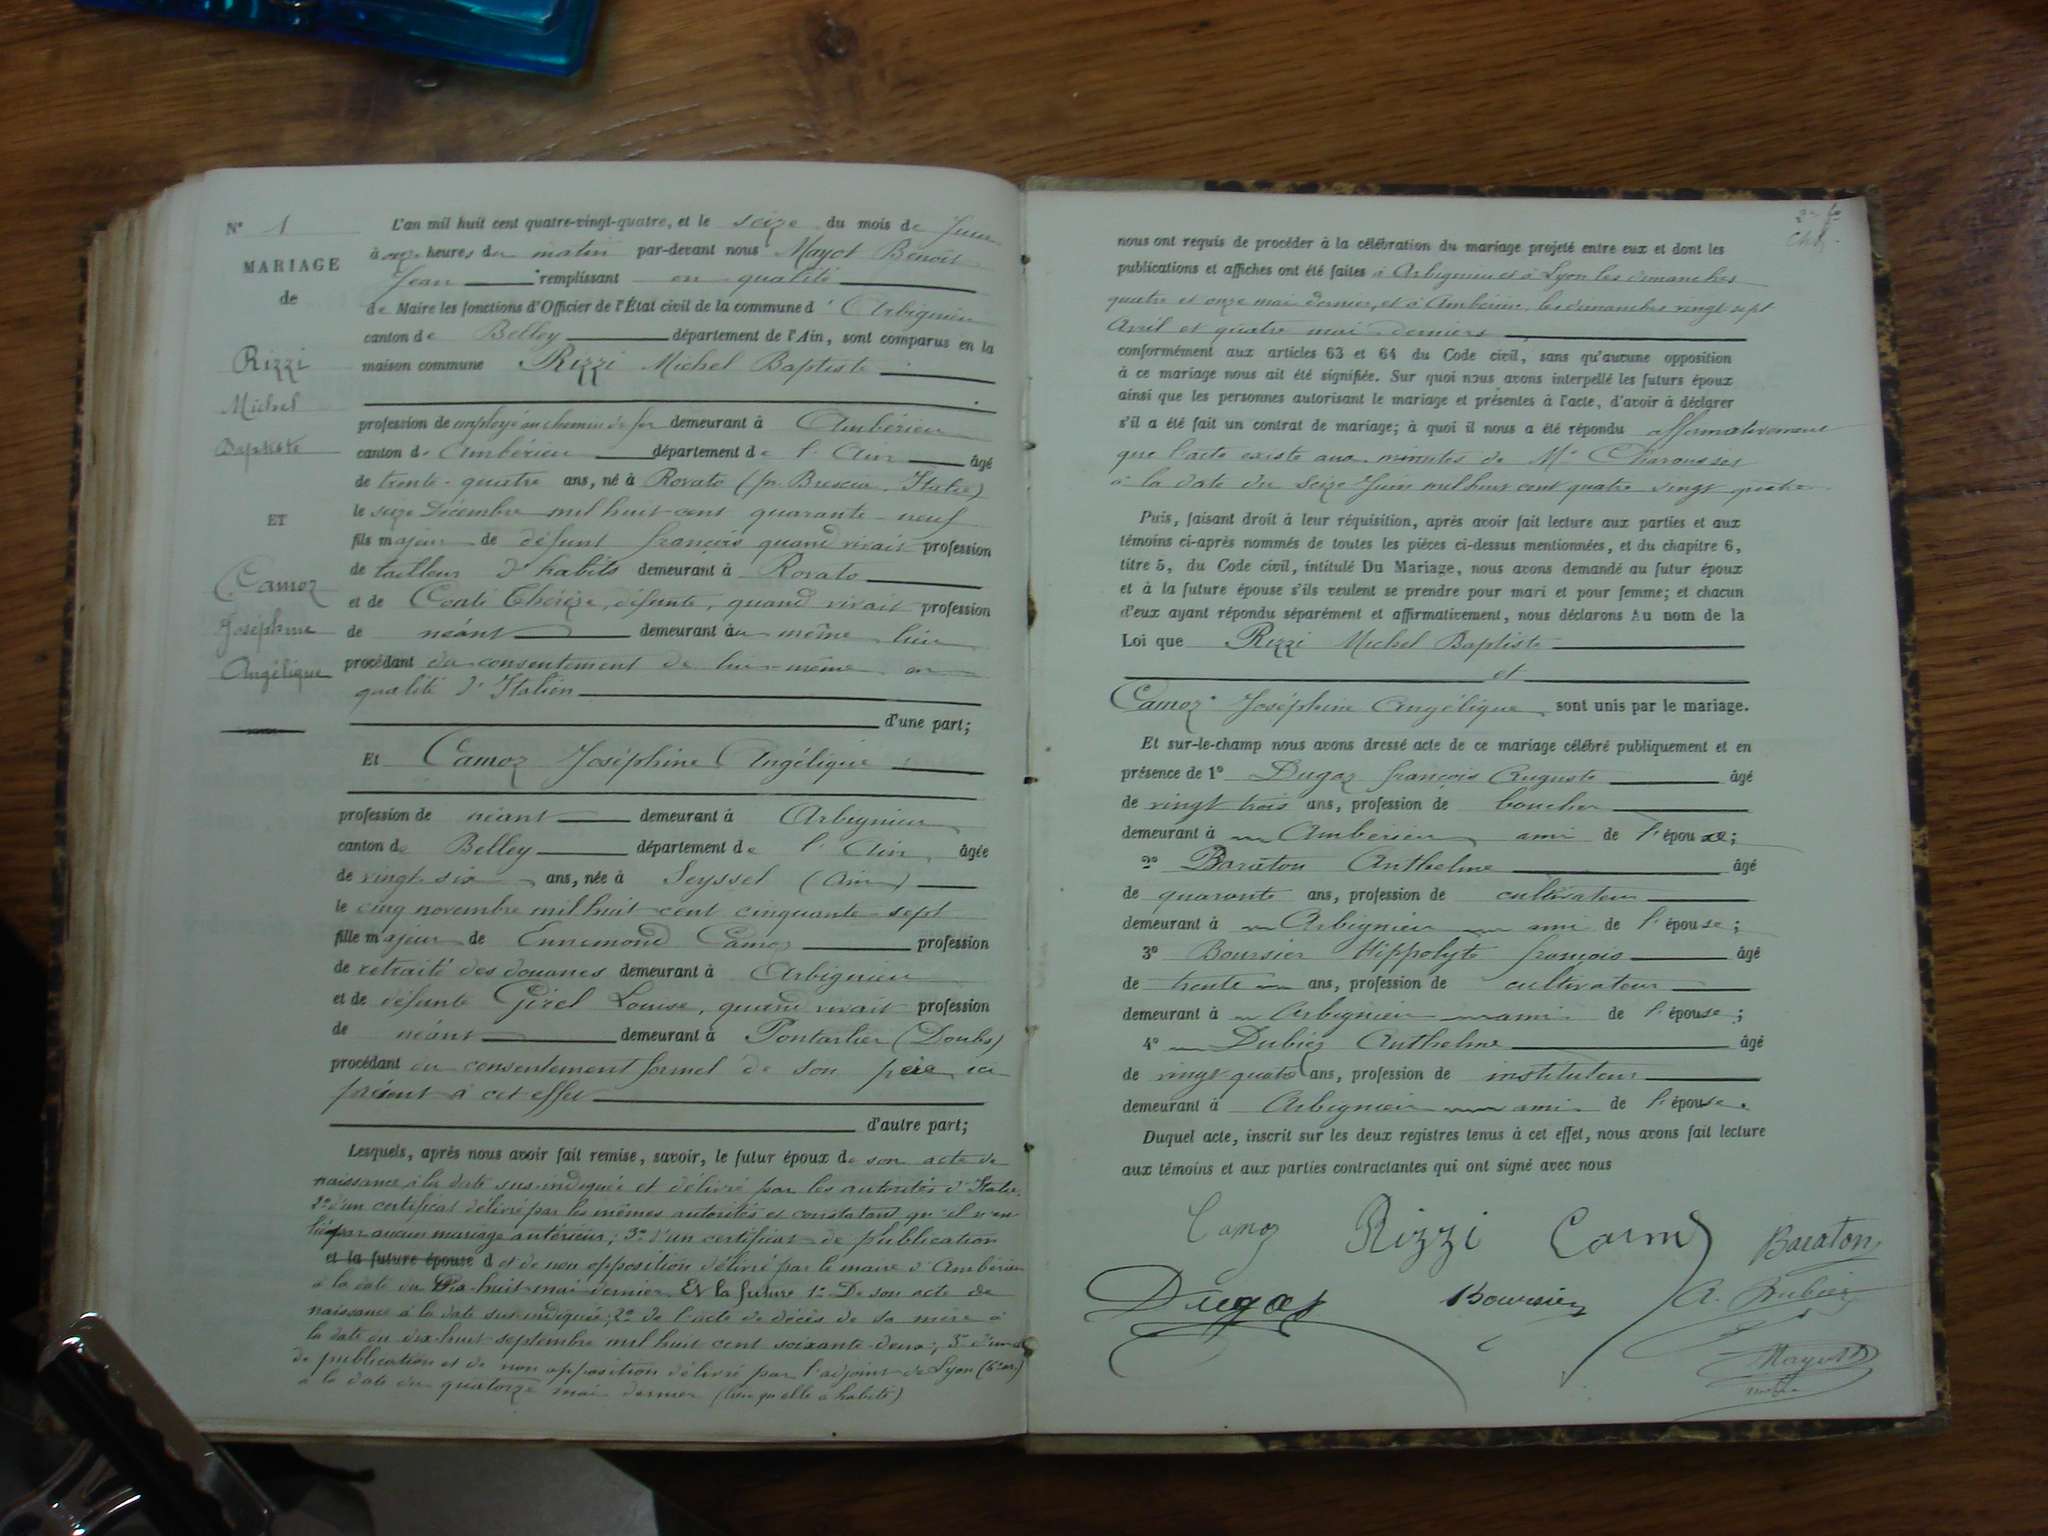 N° 1
MARIAGE
de
Rizzi
Michel
Baptiste
ET
Camoz
Joséphine
Angélique
L'an mil huit cent quatre-vingt-quatre, et le seize du mois de Juin
à onze heures du matin par-devant nous Mayot Benoit
Jean remplissant en qualité
de Maire les fonctions d'Officier de l'État civil de la commune d'Arbignieu
canton de Belley département de l'Ain, sont comparus en la
maison commune Rizzi Michel Baptiste
profession de employé au chemin de fer demeurant à Ambérieu
canton de Ambérieu département de l'Ain âgé
de trente-quatre ans, né à Rovato (pr. Brescia, Italie)
le seize Décembre mil huit cent quarante-neuf
fils majeur de défunt françois quand vivait profession
de tailleur d'habits demeurant à Rovato
et de Coati Thérèze, défunte, quand vivait profession
de néant demeurant au même lieu
procédant du consentement de lui-même en
qualité d'Italien
d'une part;
Et Camoz Joséphine Angélique
profession de néant demeurant à Arbignieu
canton de Belley département de l'Ain, âgée
de vingt six ans, née à Seyssel (Ain)
le cinq novembre mil huit cent cinquante-sept
fille majeure de Ennemond Camoz profession
de retraité des douanes demeurant à Arbignieu
et de défunte Girel Louise, quand vivait profession
de néant demeurant à Pontarlier (Doubs)
procédant du consentement formel de son père ici
présent à cet effet
d'autre part;
Lesquels, après nous avoir fait remise, savoir, le futur époux de son acte de
naissance à la date sus-indiquée et délivré par les autorités d'Italie;
2° d'un certificat délivré par les mêmes autorités et constatant qu'il n'est
lié par aucun mariage antérieur; 3° d'un certificat de publication
et la future épouse d et de non opposition délivré par le maire d'Ambérieu
à la date du dix-huit mai dernier. Et la future 1° De son acte de
naissance à la date sus-indiquée; 2° de l'acte de décès de sa mère à
la date du dix-huit septembre mil huit cent soixante-deux; 3°
de publication et de non opposition délivré par l'adjoint de Lyon (6e ar.)
à la date du quatorze mai dernier (lieu qu'elle a habité)
nous ont requis de procéder à la célébration du mariage projeté entre eux et dont les
publications et affiches ont été faites à Arbignieu et à Lyon les dimanches
quatre et onze mai dernier, et à Ambérieu, les dimanches vingt-sept
Avril et quatre mai derniers
conformément aux articles 63 et 64 du Code civil, sans qu'aucune opposition
à ce mariage nous ait été signifiée. Sur quoi nous avons interpellé les futurs époux
ainsi que les personnes autorisant le mariage et présentes à l'acte, d'avoir à déclarer
s'il a été fait un contrat de mariage; à quoi il nous a été répondu affirmativement
que l'acte existe aux minutes de Me Charoussier
à la date du seize Juin mil huit cent quatre vingt quatre
Puis, faisant droit à leur réquisition, après avoir fait lecture aux parties et aux
témoins ci-après nommés de toutes les pièces ci-dessus mentionnées, et du chapitre 6,
titre 5, du Code civil, intitulé Du Mariage, nous avons demandé au futur époux
et à la future épouse s'ils veulent se prendre pour mari et pour femme; et chacun
d'eux ayant répondu séparément et affirmativement, nous déclarons Au nom de la
Loi que Rizzi Michel Baptiste
et
Camoz Joséphine Angélique sont unis par le mariage.
Et sur-le-champ nous avons dressé acte de ce mariage célébré publiquement et en
présence de 1° Dugaz françois Auguste âgé
de vingt trois ans, profession de boucher
demeurant à Ambérieu ami de l'épouse;
2° Baraton Anthelme âgé
de quarante ans, profession de cultivateur
demeurant à Arbignieu ami de l'épouse;
3° Boursier Hippolyte françois âgé
de trente ans, profession de cultivateur
demeurant à Arbignieu ami de l'épouse;
4° Dubiez Anthelme âgé
de vingt quatre ans, profession de instituteur
demeurant à Arbignieu ami de l'épouse.
Duquel acte, inscrit sur les deux registres tenus à cet effet, nous avons fait lecture
aux témoins et aux parties contractantes qui ont signé avec nous
Camoz Rizzi Camoz Baraton
Dugaz Boursier A. Dubiez
Mayot